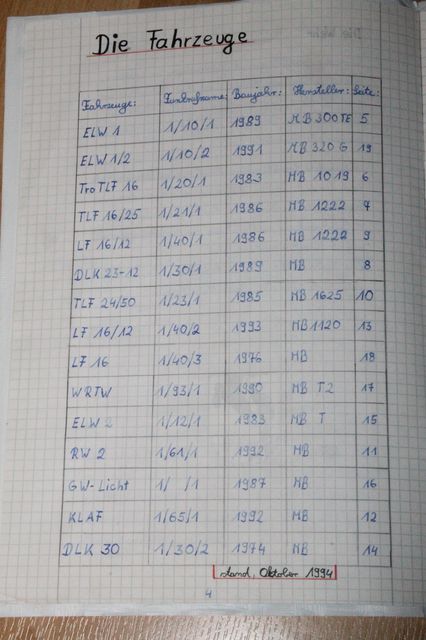 Die Fahrzeuge
Fahrzeuge: Funkrufname: Baujahr: Hersteller: Seite:
ELW 1 1/10/1 1989 MB 300 TE 5
ELW 1/2 1/10/2 1991 MB 320 G 19
Tro TLF 16 1/20/1 1983 MB 1019 6
TLF 16/25 1/21/1 1986 MB 1222 7
LF 16/12 1/40/1 1986 MB 1222 9
DLK 23-12 1/30/1 1989 MB 8
TLF 24/50 1/23/1 1985 MB 1625 10
LF 16/12 1/40/2 1993 MB 1120 13
LF 16 1/40/3 1976 MB 18
WRTW 1/93/1 1990 MB T2 17
ELW 2 1/12/1 1983 MB T 15
RW 2 1/61/1 1992 MB 11
GW-Licht 1/ /1 1987 MB 16
KLAF 1/65/1 1992 MB 12
DLK 30 1/30/2 1974 MB 14
Stand, Oktober 1994
4